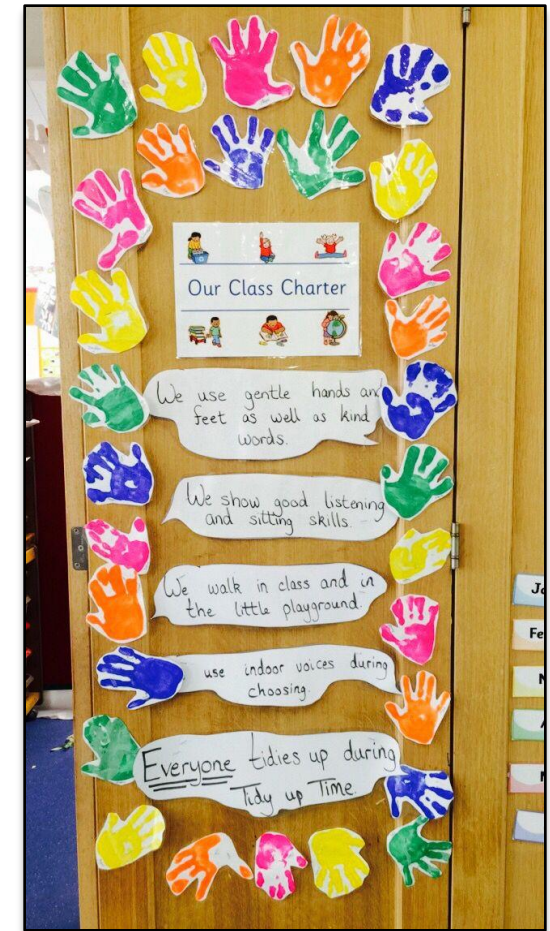 Our Class Charter
We use gentle hands and
feet as well as kind
words.
We show good listening
and sitting skills.
We walk in class and in
the little playground.
use indoor voices during
choosing.
Everyone tidies up during
Tidy up Time.
Fe